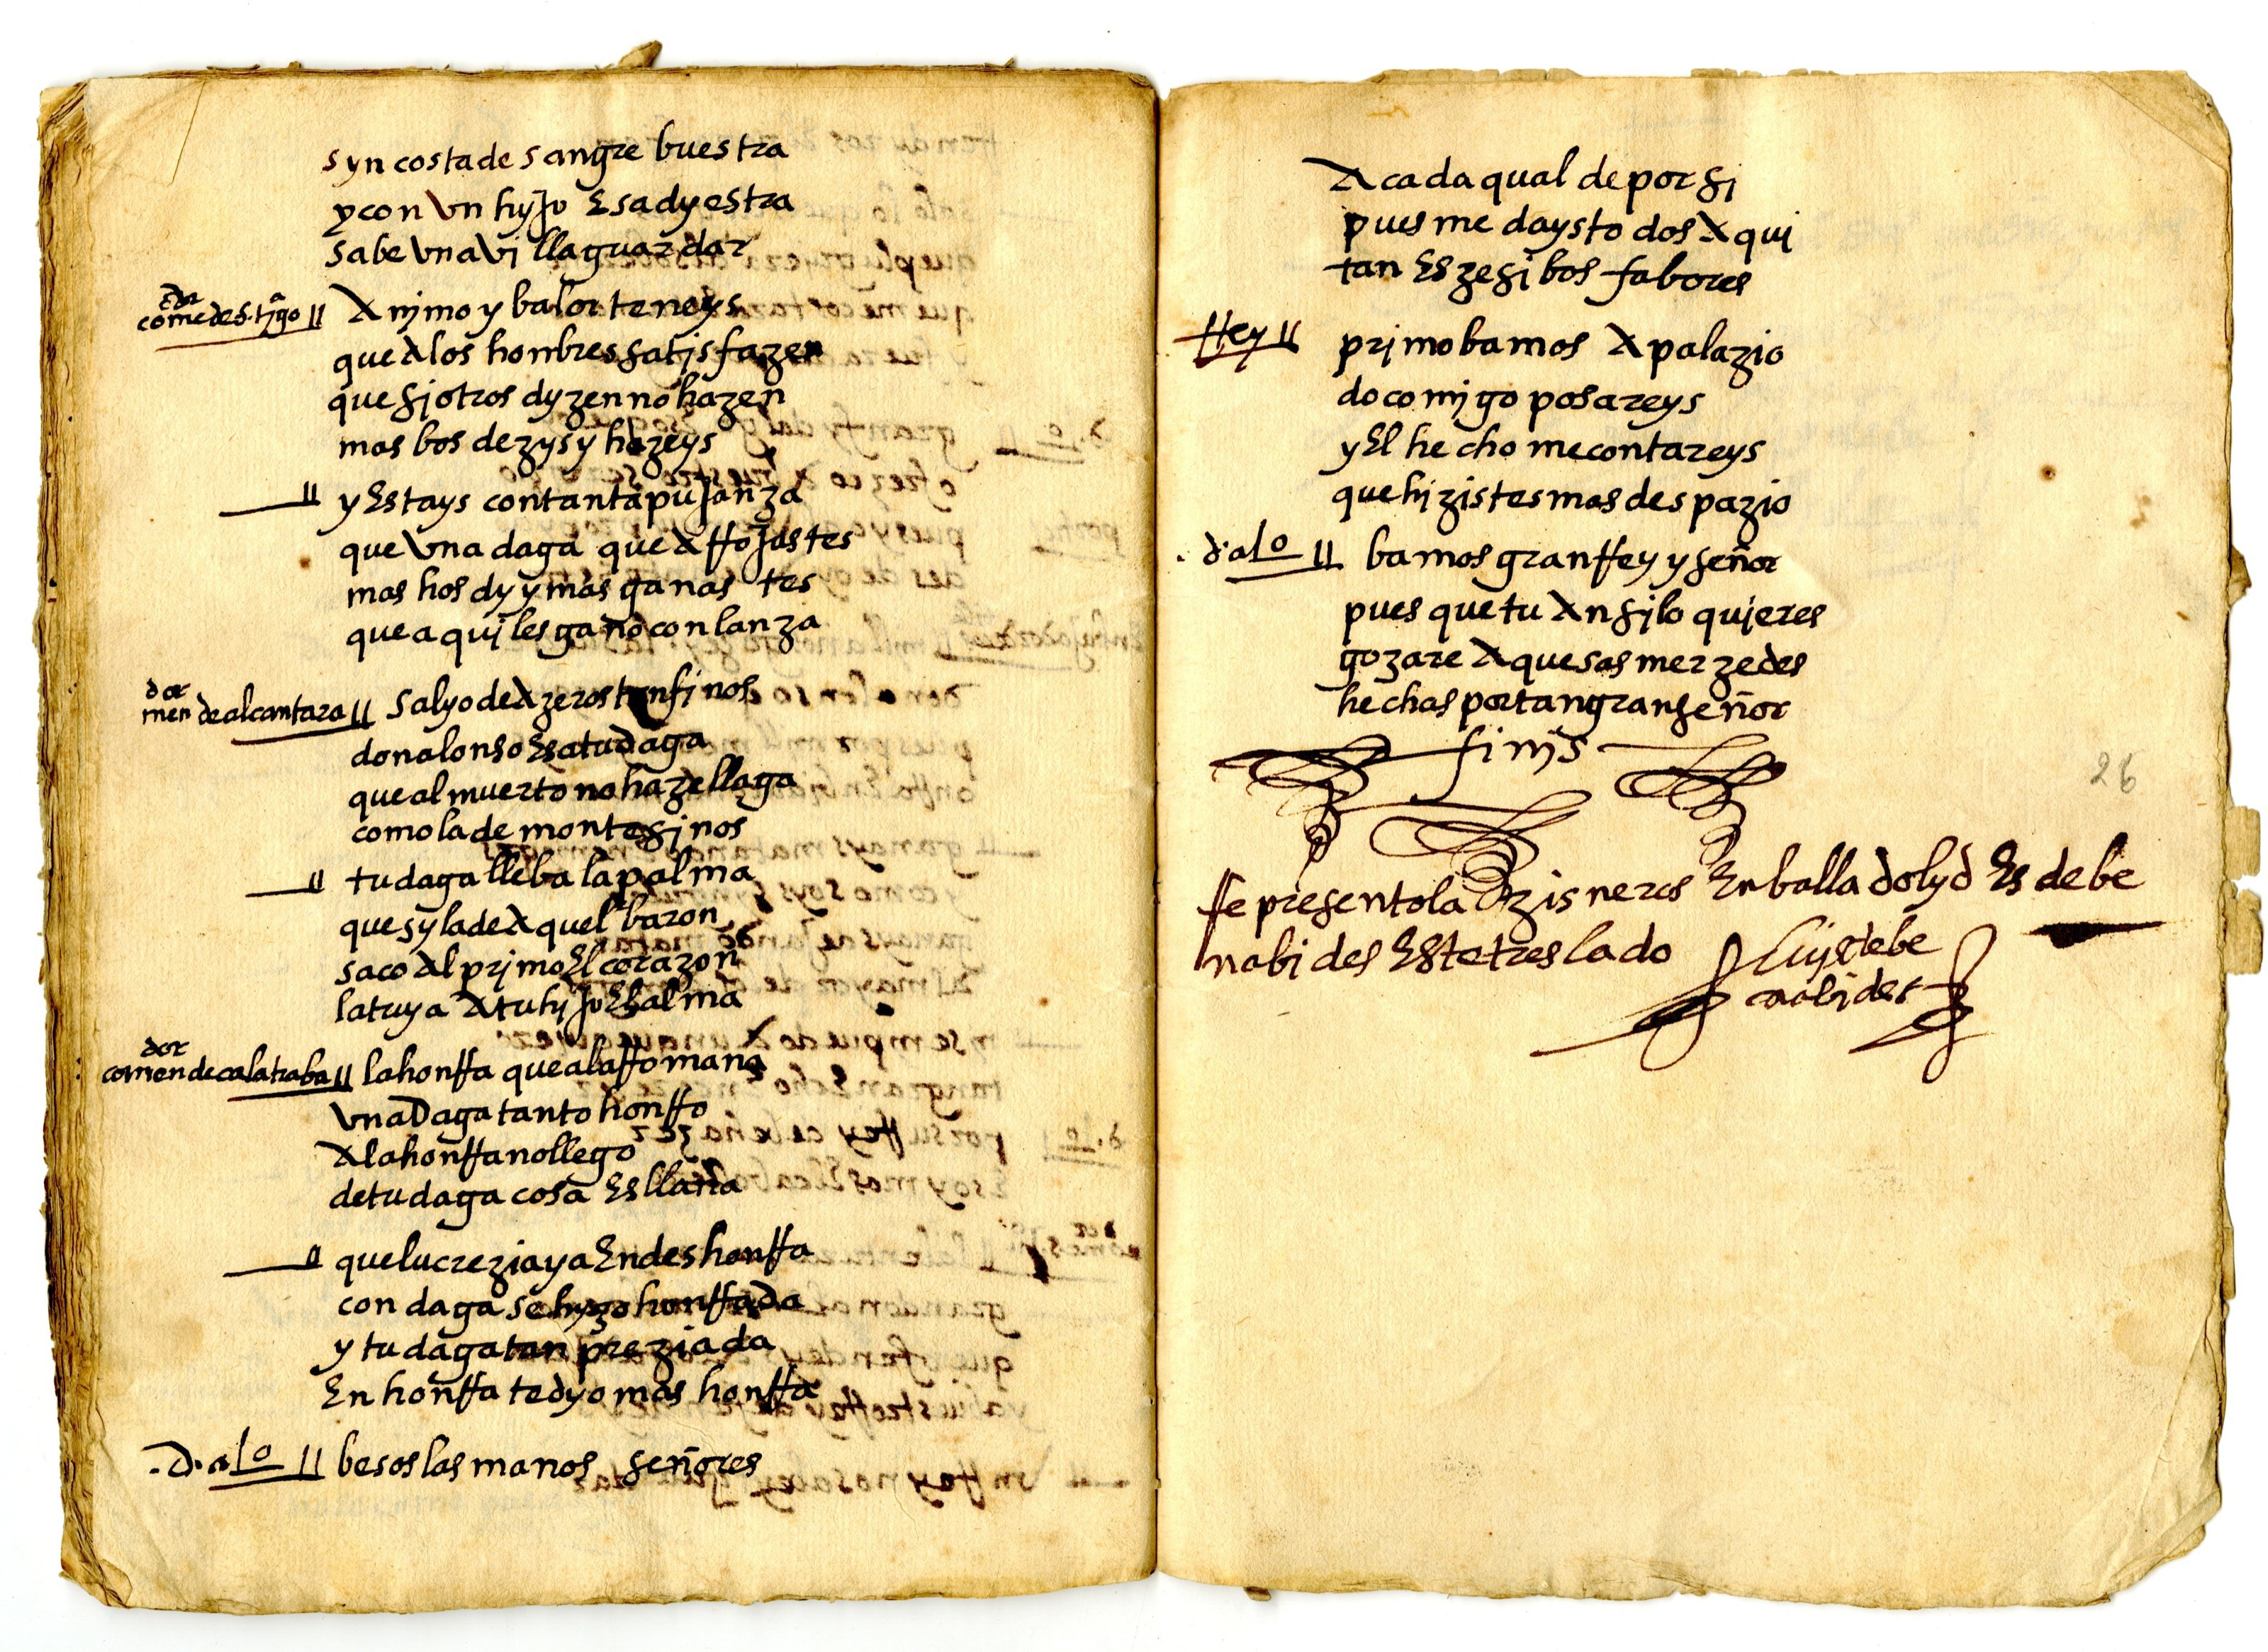 syn costa de sangre buestra
y con vn hyjo Esa dyestra
sabe vna villa guardar
comedor de s.tiago || Animo y balor teneys
que a los honbres satisfazen
que si otros dyzen no hazen
mas bos dezys y hazeys
|| y Estays con tanta pujanza
que vna daga que Affojastes
mas hos dy y mas ganastes
que aquiles gano con lanza
comendor de alcantara || salyo de Azeros tan finos
don alonso Esa tu daga
que al muerto no haze llaga
como la de montesinos
|| tu daga lleba la palma
que sy la de Aquel baron
saco Al primo El corazon
la tuya A tu hijo El alma
comendor de calatraba || la honrra que a la rromana
vna Daga tanto honrro
A la honrra no llego
de tu daga cosa Es llana
|| que lucrezia ya En deshonrra
con daga se hyzo honrrada
y tu daga tan preziada
En honrra te dyo mas honrra
.D. alo || besos las manos señores
A cada qual de por si
pues me days todos Aqui
tan Eszesibos fabores
Rey || primo bamos A palazio
do comigo posareys
y El hecho me contareys
que hizistes mas despazio
.d. alo || bamos gran rrey y señor
pues que tu Ansi lo quieres
gozare Aquesas merzedes
hechas por tan gran señor
finis
26
rrepresentola zisneros En balladolyd Es de be
nabides Este treslado
luys de be
nabides